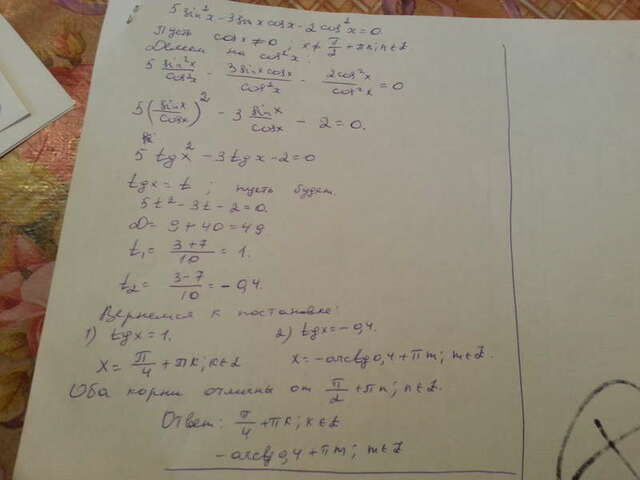 5 sin²x - 3 sin x cos x - 2 cos²x = 0.
Пусть cos x ≠ 0, x ≠ π/2 + πn; n∈Z
Делим на cos²x:
5 sin²x/cos²x - 3 sin x cos x/cos²x - 2cos²x/cos²x = 0
5(sin x/cos x)² - 3 sin x/cos x - 2 = 0.
5 tgx² - 3 tgx - 2 = 0
tgx = t ; пусть будет.
5t² - 3t - 2 = 0.
D = 9 + 40 = 49
t₁ = 3+7/10 = 1.
t₂ = 3-7/10 = -0,4.
Вернемся к постановке:
1) tgx = 1. 2) tgx = -0,4.
x = π/4 + πk; k∈Z x = -arctg 0,4 + πm; m∈Z.
Оба корни отличны от π/2 + πn; n∈Z.
Ответ: π/4 + πk; k∈Z
-arctg 0,4 + πm; m∈Z